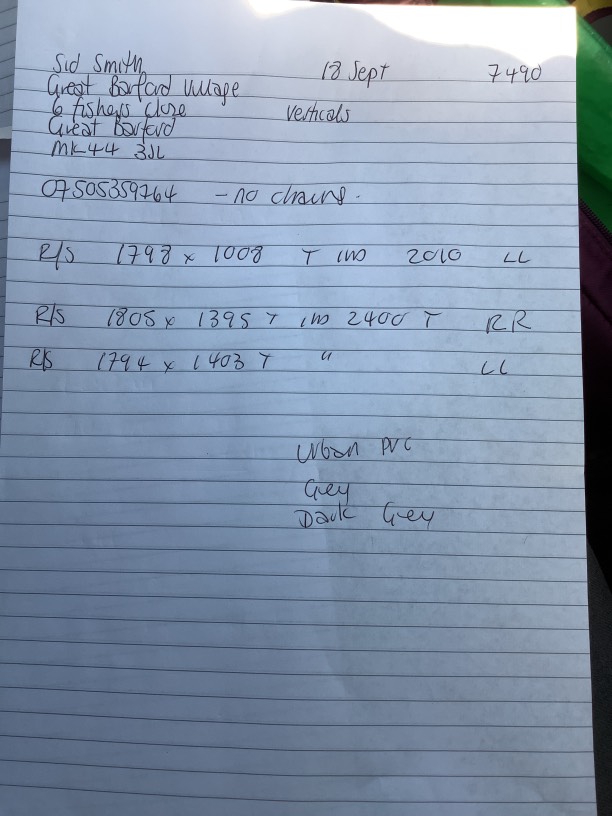 Sid Smith 18 Sept 7490
Great Barford Village
6 fishers close Verticals
Great Barford
MK44 3JL
07505359764 - no chains.
R/S 1798 x 1008 T IWO 2010 LL
R/S 1805 x 1395 T IWO 2400 T RR
R/S 1794 x 1403 T " LL
Urban PVC
Grey
Dark Grey